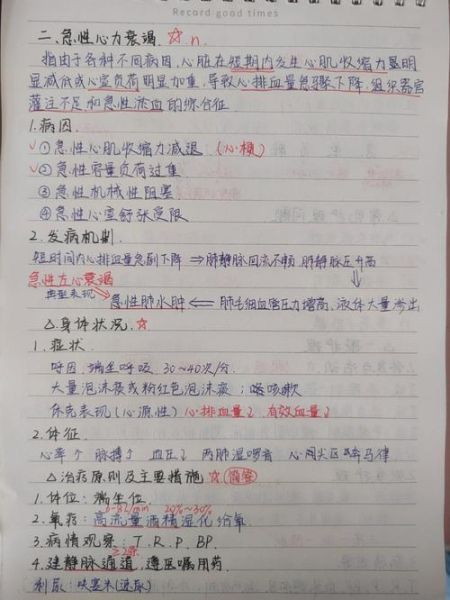 Record good times
二、急性心力衰竭 ☆ n.
指由于各种不同病因，心脏在短期内发生心肌收缩力显明
显减低或心室负荷明显加重，导致心排血量急骤下降，组织器官
灌注不足和急性淤血的综合征
1.病因
√①急性心肌收缩力减退（心梗）
√②急性容量负荷过重
③急性机械性阻塞
④急性心室舒张受限
2.发病机制
短时间内心排血量急剧下降 ⇒ 肺静脉回流不畅 肺静脉压升高
急性左心衰竭
典型表现→ 急性肺水肿 ⇐ 肺毛细血管压力增高，液体大量渗出
△身体状况 ☆
1.症状
呼困、端坐呼吸 30~40次/分
大量泡沫痰或粉红色泡沫痰；咳嗽
休克表现（心源性）心排血量↓ 有效血量↓
2.体征
心率↑ 脉搏↑ 血压↓ 两肺湿啰音 心间尖区奔马律
△治疗原则及主要措施 ☆ 简答
1.体位：端坐位
6-8L/min 20%~30%
2.氧疗：高流量酒精湿化给氧
3.病情观察：T.R.P.BP.
≥2条
4.建静脉通道，遵医嘱用药
利尿：呋塞米(速尿)